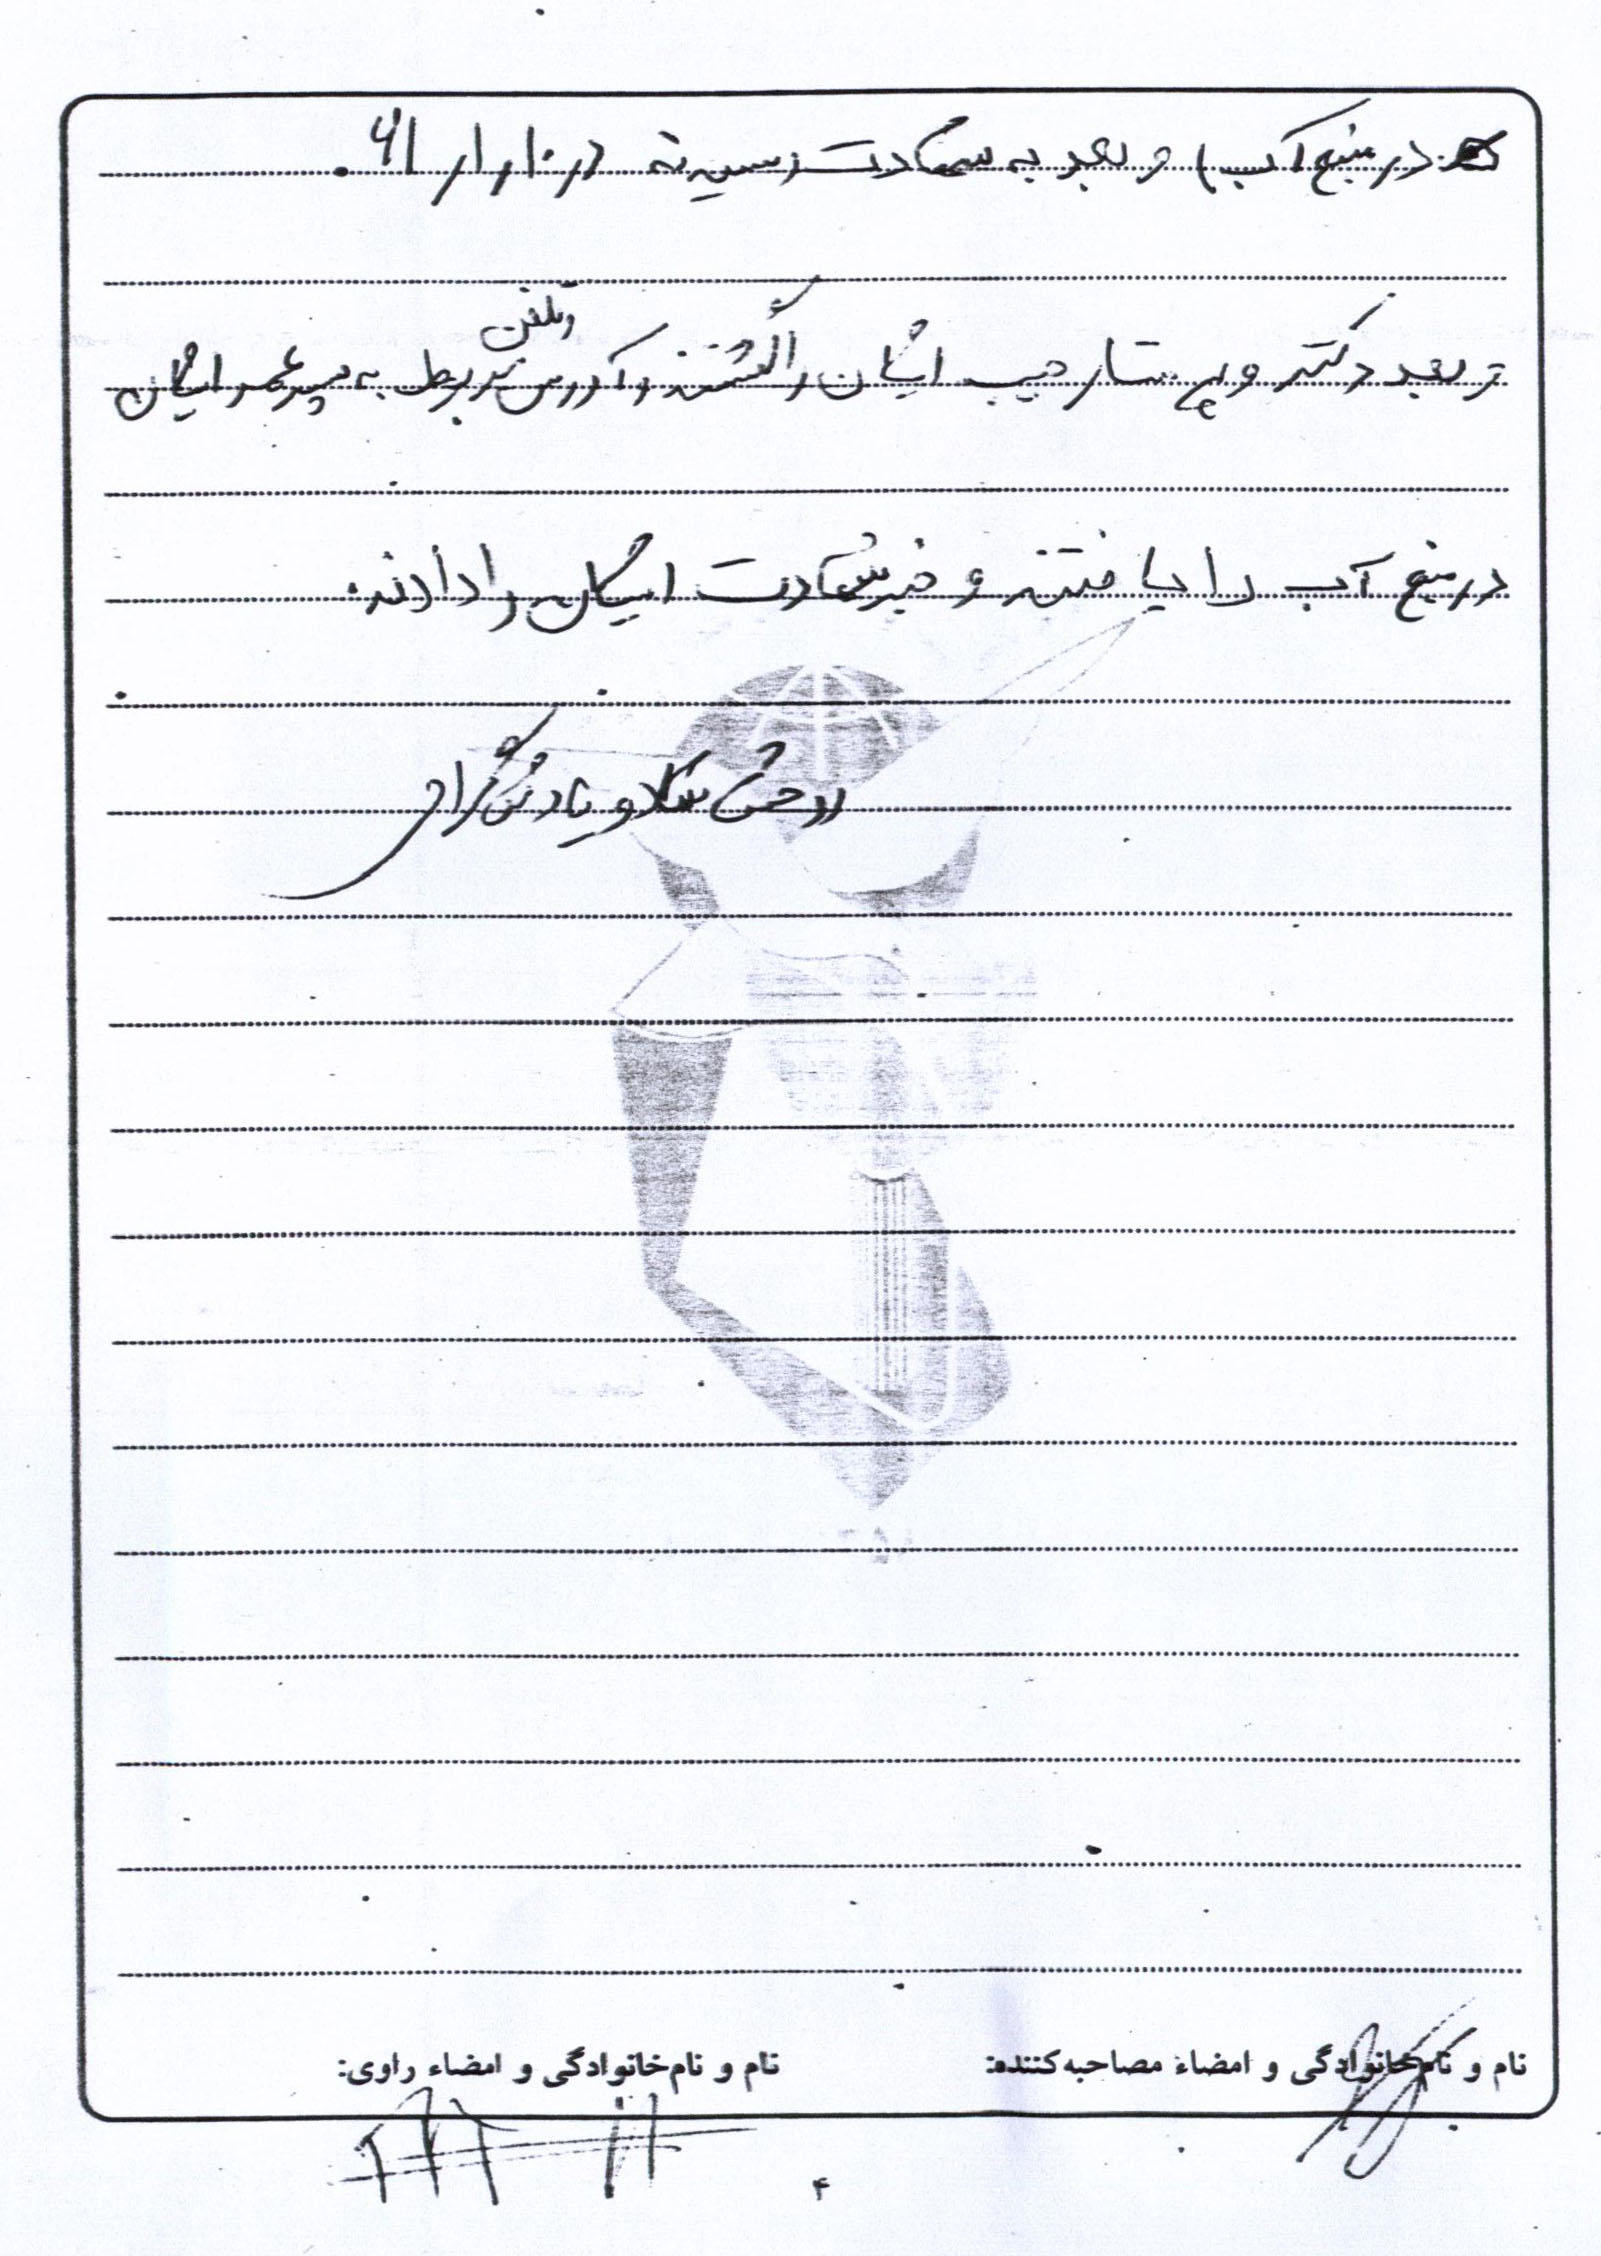 در منبع آب) و بعد به شهادت رسیدند در ۱۰/۱/۶۱.
و تلفن
و بعد دکتر و پرستار جیب ایشان را گشتند و آدرس مربوط به پسر عمه ایشان
در منبع آب را یافتند و خبر شهادت ایشان را دادند.
روحش شاد و یادش گرامی
نام و نام‌خانوادگی و امضاء مصاحبه‌کننده:
نام و نام‌خانوادگی و امضاء راوی:
۴